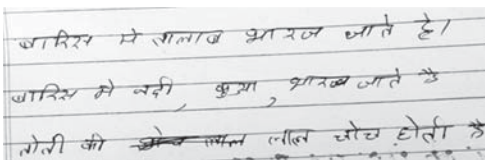 बारिस मे तालाब भारज जाते है।
बारिस मे नदी, कुआ, भारब जाते है
तोती की लाल चोच होती है